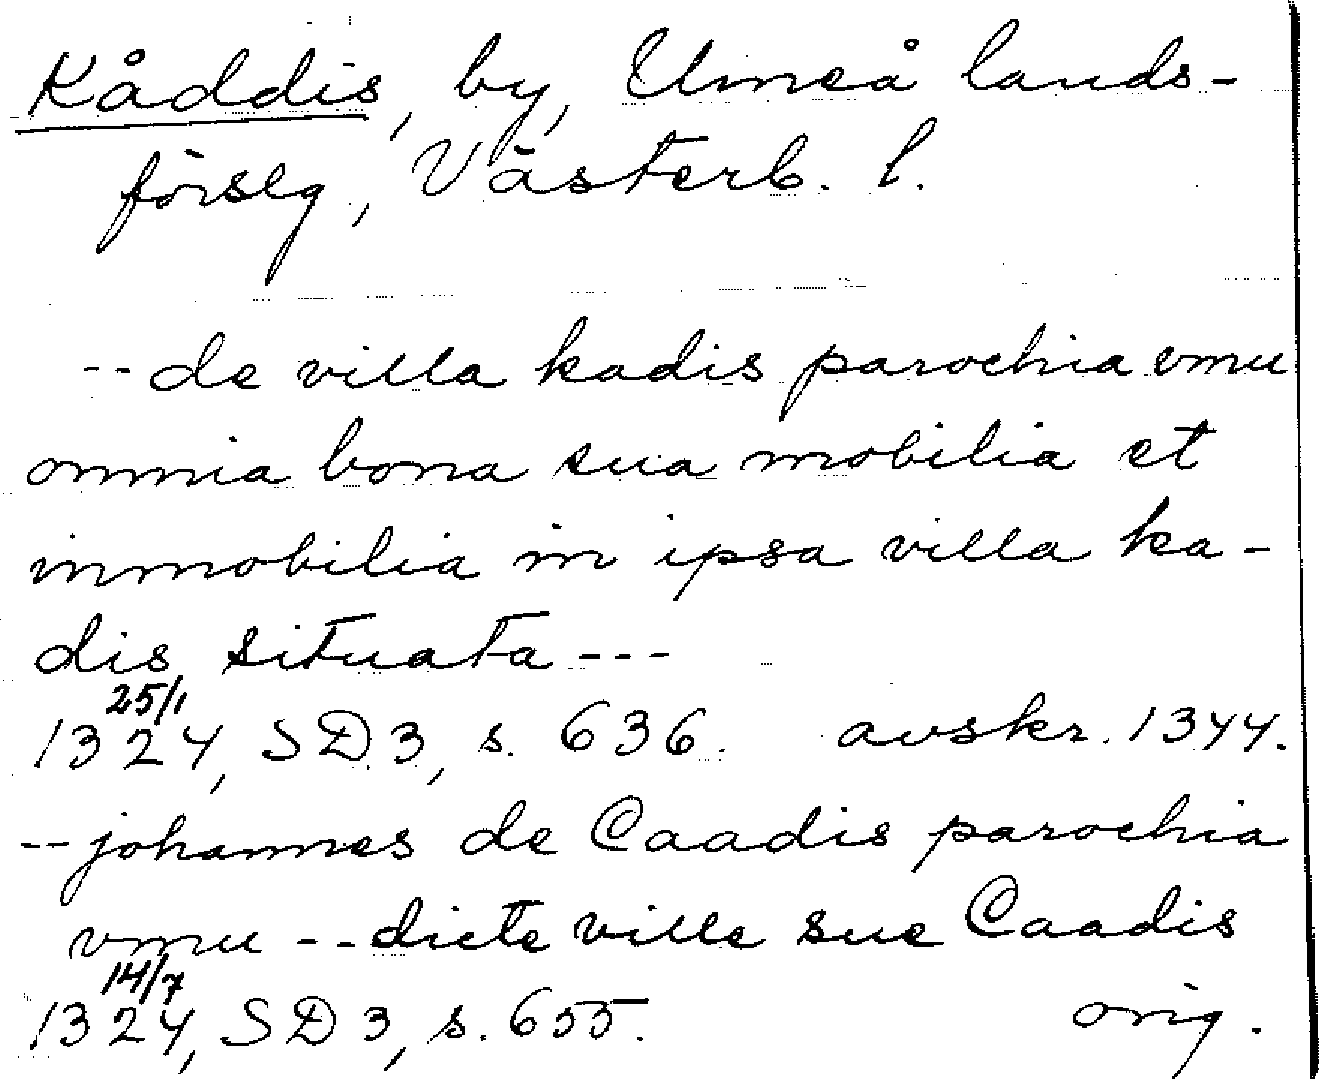 Kåddis, by, Umeå lands-
förslg, Västerb. l.
-- de villa kadis parochia vmu
omnia bona sua mobilia et
immobilia in ipsa villa ka-
dis situata ---
25/1
1324, SD 3, s. 636. avskr. 1344.
-- johannes de Caadis parochia
vmu -- dicte ville sue Caadis
14/7
1324, SD 3, s. 655. orig.